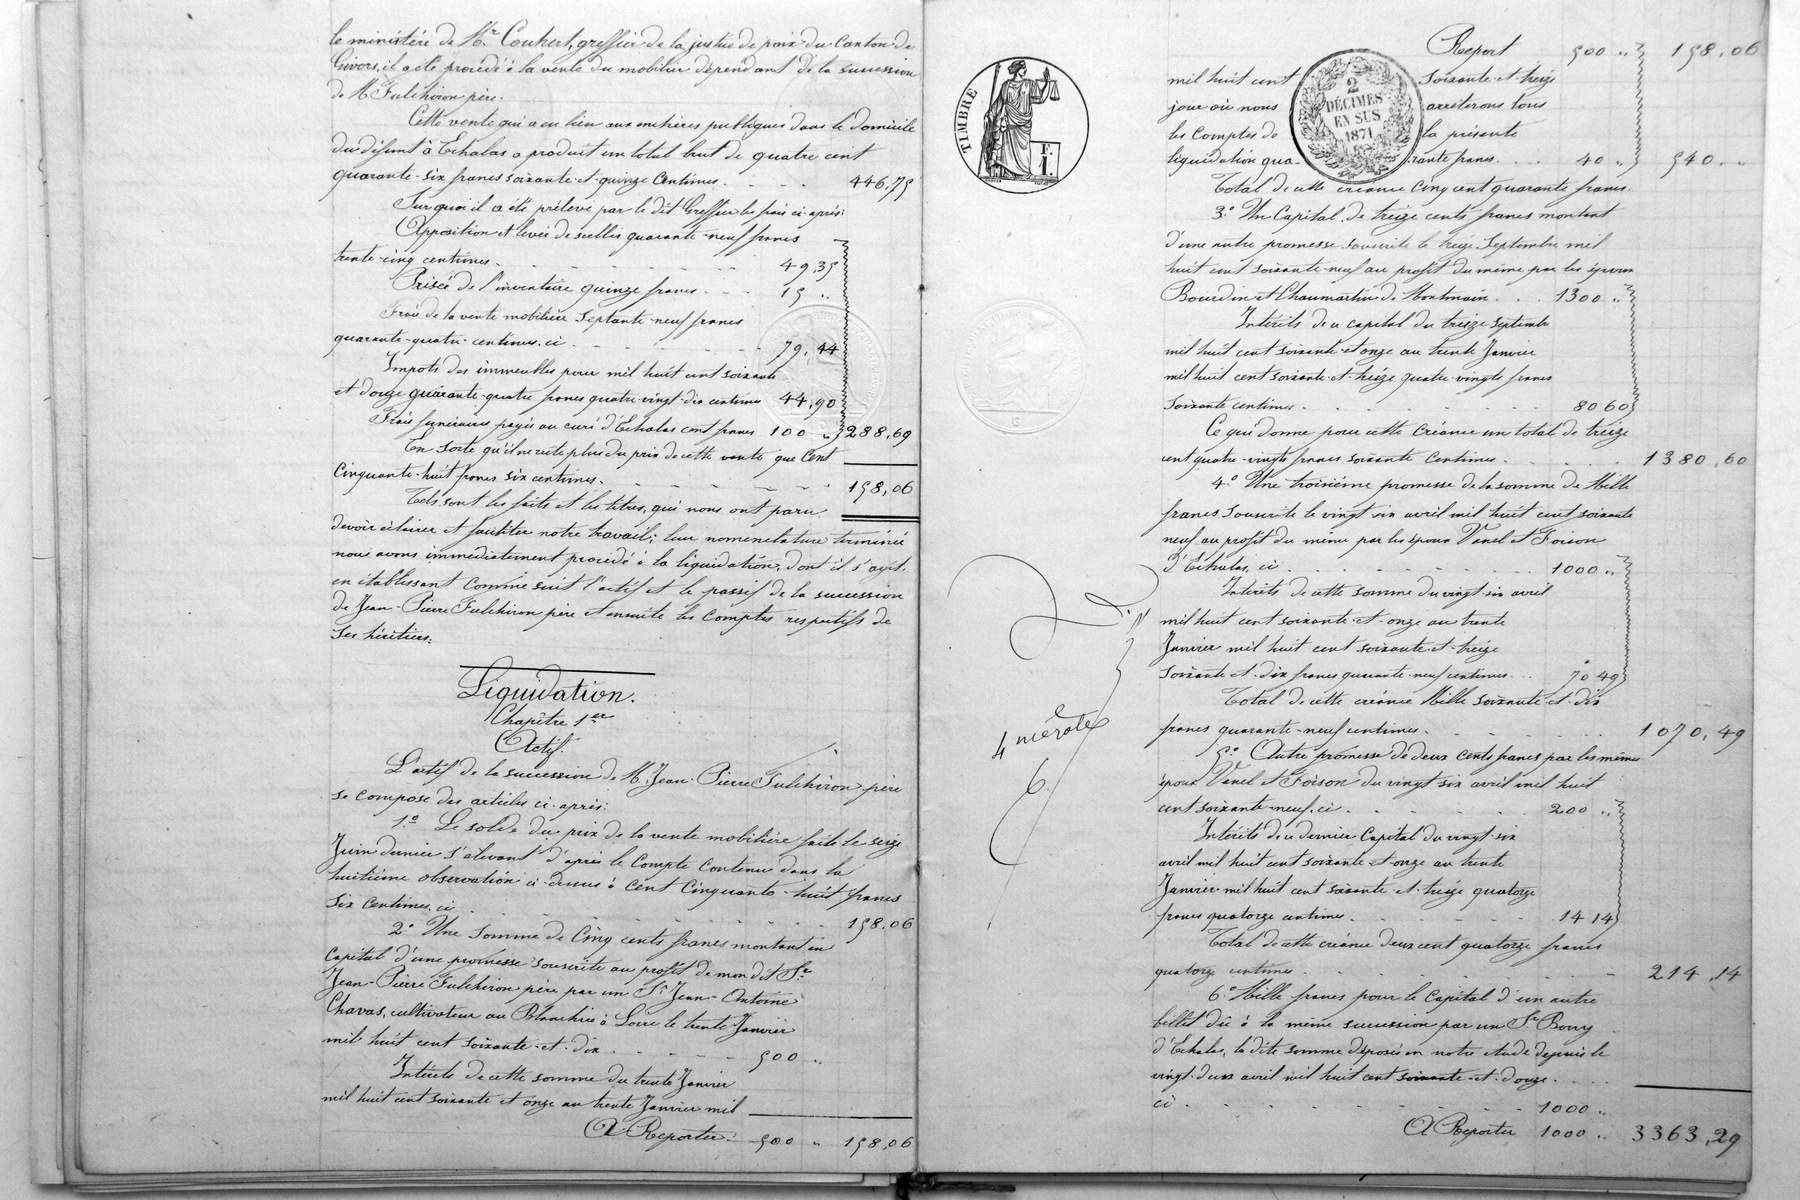 le ministère de Mr Couhert, greffier de la justice de paix du Canton de
Givors, il a été procédé à la vente du mobilier dépendant de la succession
de M. Fulchiron père.
Cette vente qui a eu lieu aux enchères publiques dans le domicile
du défunt à Echalas a produit un total brut de quatre cent
quarante-six francs soixante-et-quinze Centimes. 446,75
Sur quoi il a été prélevé par le dit Greffier les frais ci-après:
Apposition et levée de scellés quarante-neuf francs
trente-cinq centimes. 49,35
Prisée de l'inventaire quinze francs. 15 "
Frais de la vente mobilière Septante-neuf francs
quarante-quatre-centimes, ci 79,44
Impots des immeubles pour mil huit cent soixante
et douze quarante-quatre francs quatre-vingt-dix centimes 44,90
Frais funéraires payés au curé d'Echalas cent francs 100 " 288,69
En sorte qu'il ne reste plus du prix de cette vente que Cent
Cinquante-huit francs six centimes. 158,06
Tels sont les faits et les titres, qui nous ont paru
devoir éclairer et faciliter notre travail; leur nomenclature terminée
nous avons immédiatement procédé à la liquidation, dont il s'agit.
en établissant comme suit l'actif et le passif de la succession
de Jean-Pierre Fulchiron père et ensuite les Comptes respectifs de
Ses héritiers:
Liquidation.
Chapître 1er
Actif.
L'actif de la succession de M. Jean-Pierre Fulchiron père
se compose des articles ci-après:
1.º Le solde du prix de la vente mobilière faite le seize
Juin dernier s'élevant d'après le Compte Contenu dans la
huitième observation ci-dessus à Cent Cinquante-huit francs
six Centimes, ci 158,06
2º Une Somme de Cinq cents francs montant en
Capital d'une promesse souscrite au profit de mon dit Sr
Jean-Pierre Fulchiron père par un Sr Jean-Antoine
Chavas, cultivateur au Blanchin à Loire le trente Janvier
mil huit cent soixante-et-dix 500 "
Intérêts de cette somme du trente Janvier
mil huit cent soixante et onze au trente Janvier mil
A Reporter. 500 " 158,06
Report 500 " 158,06
TIMBRE
F.
I.
2
DÉCIMES
EN SUS
1871
mil huit cent soixante-et-treize
jour où nous arrêterons tous
les Comptes de la présente
liquidation quarante francs. 40 " 540 "
Total de cette créance Cinq cent quarante francs.
3.º Un Capital de treize cents francs montant
d'une autre promesse souscrite le treize Septembre mil
huit cent soixante-neuf au profit du même par les époux
Bourdin et Chaumartin de Montmain 1300 "
Intérêts de ce capital du treize Septembre
mil huit cent soixante-et-onze au trente Janvier
mil huit cent soixante-et-treize quatre-vingts francs
soixante centimes. 80 60
Ce qui donne pour cette Créance un total de treize
cent quatre-vingts francs soixante Centimes. 1380,60
4.º Une troisième promesse de la somme de Mille
francs souscrite le vingt six avril mil huit cent soixante
neuf au profit du même par les époux Vanel et Foison
d'Echalas, ci 1000 "
Intérêts de cette somme du vingt-six avril
mil huit cent soixante-et-onze au trente
Janvier mil huit cent soixante-et-treize
Soixante-et-dix francs quarante-neuf centimes. 70 49
Total de cette créance Mille soixante-et-dix
francs quarante-neuf centimes. 1070,49
4e mérote
5.º Autre promesse de deux Cents francs par les mêmes
époux Vanel et Foison du vingt six avril mil huit
cent soixante-neuf, ci 200 "
Intérêts de ce dernier Capital du vingt-six
avril mil huit cent soixante-et-onze au trente
Janvier mil huit cent soixante-et-treize quatorze
francs quatorze centimes. 14 14
Total de cette créance deux cent quatorze francs
quatorze centimes 214,14
6.º Mille francs pour le Capital d'un autre
billet dû à la même succession par un Sr Bory
d'Echalas, la dite somme déposée en notre étude depuis le
vingt-deux avril mil huit cent soixante-et-douze.
ci 1000 "
A Reporter 1000 " 3363,29